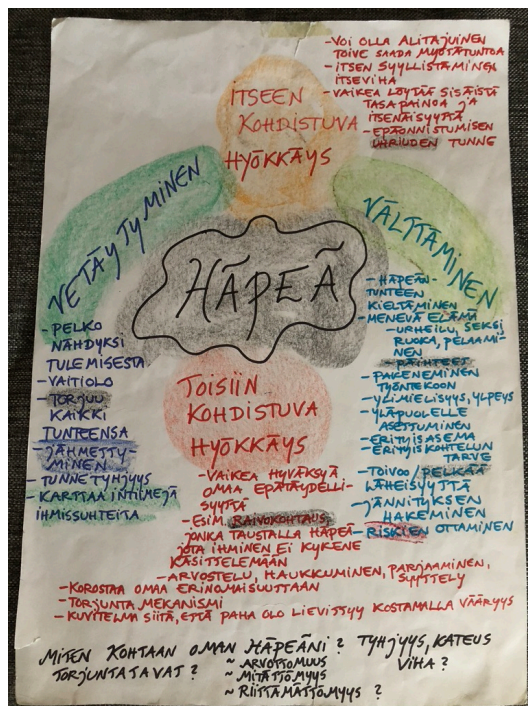 -VOI OLLA ALITAJUINEN
TOIVE SAADA MYÖTÄTUNTOA
-ITSEN SYYLLISTÄMINEN
ITSEVIHA
-VAIKEA LÖYTÄÄ SISÄISTÄ
TASAPAINOA JA
ITSENÄISYYTTÄ
-EPÄONNISTUMISEN
UHRIUDEN TUNNE
ITSEEN
KOHDISTUVA
HYÖKKÄYS
VETÄYTYMINEN
-PELKO
NÄHDYKSI
TULEMISESTA
-VAITIOLO
-TORJUU
KAIKKI
TUNTEENSA
-JÄHMETTY-
MINEN
-TUNNE TYHJYYS
-KARTTAA INTIIMEJÄ
IHMISSUHTEITA
HÄPEÄ
VÄLTTÄMINEN
-HÄPEÄN-
TUNTEEN
KIELTÄMINEN
-MENEVÄ ELÄMÄ
-URHEILU, SEKSI,
RUOKA, PELAAMI-
NEN
PÄIHTEET
-PAKENEMINEN
TYÖNTEKOON
-YLIMIELISYYS, YLPEYS
-YLÄPUOLELLE
ASETTUMINEN
-ERITYISASEMA
ERITYISKOHTELUN
TARVE
-TOIVOO/PELKÄÄ
LÄHEISYYTTÄ
-JÄNNITYKSEN
HAKEMINEN
-RISKIEN OTTAMINEN
TOISIIN
KOHDISTUVA
HYÖKKÄYS
-VAIKEA HYVÄKSYÄ
OMAA EPÄTÄYDELLI-
SYYTTÄ
-ESIM. RAIVOKOHTAUS
JONKA TAUSTALLA HÄPEÄ
JOTA IHMINEN EI KYKENE
KÄSITTELEMÄÄN
-ARVOSTELU, HAUKKUMINEN, PARJAAMINEN,
SYYTTELY
-KOROSTAA OMAA ERINOMAISUUTTAAN
-TORJUNTA MEKANISMI
-KUVITELMA SIITÄ, ETTÄ PAHA OLO LIEVITTYY KOSTAMALLA VÄÄRYYS
MITEN KOHTAAN OMAN HÄPEÄNI? TYHJYYS, KATEUS
TORJUNTATAVAT? ~ARVOTTOMUUS VIHA?
~MITÄTTÖMYYS
~RIITTÄMÄTTÖMYYS?